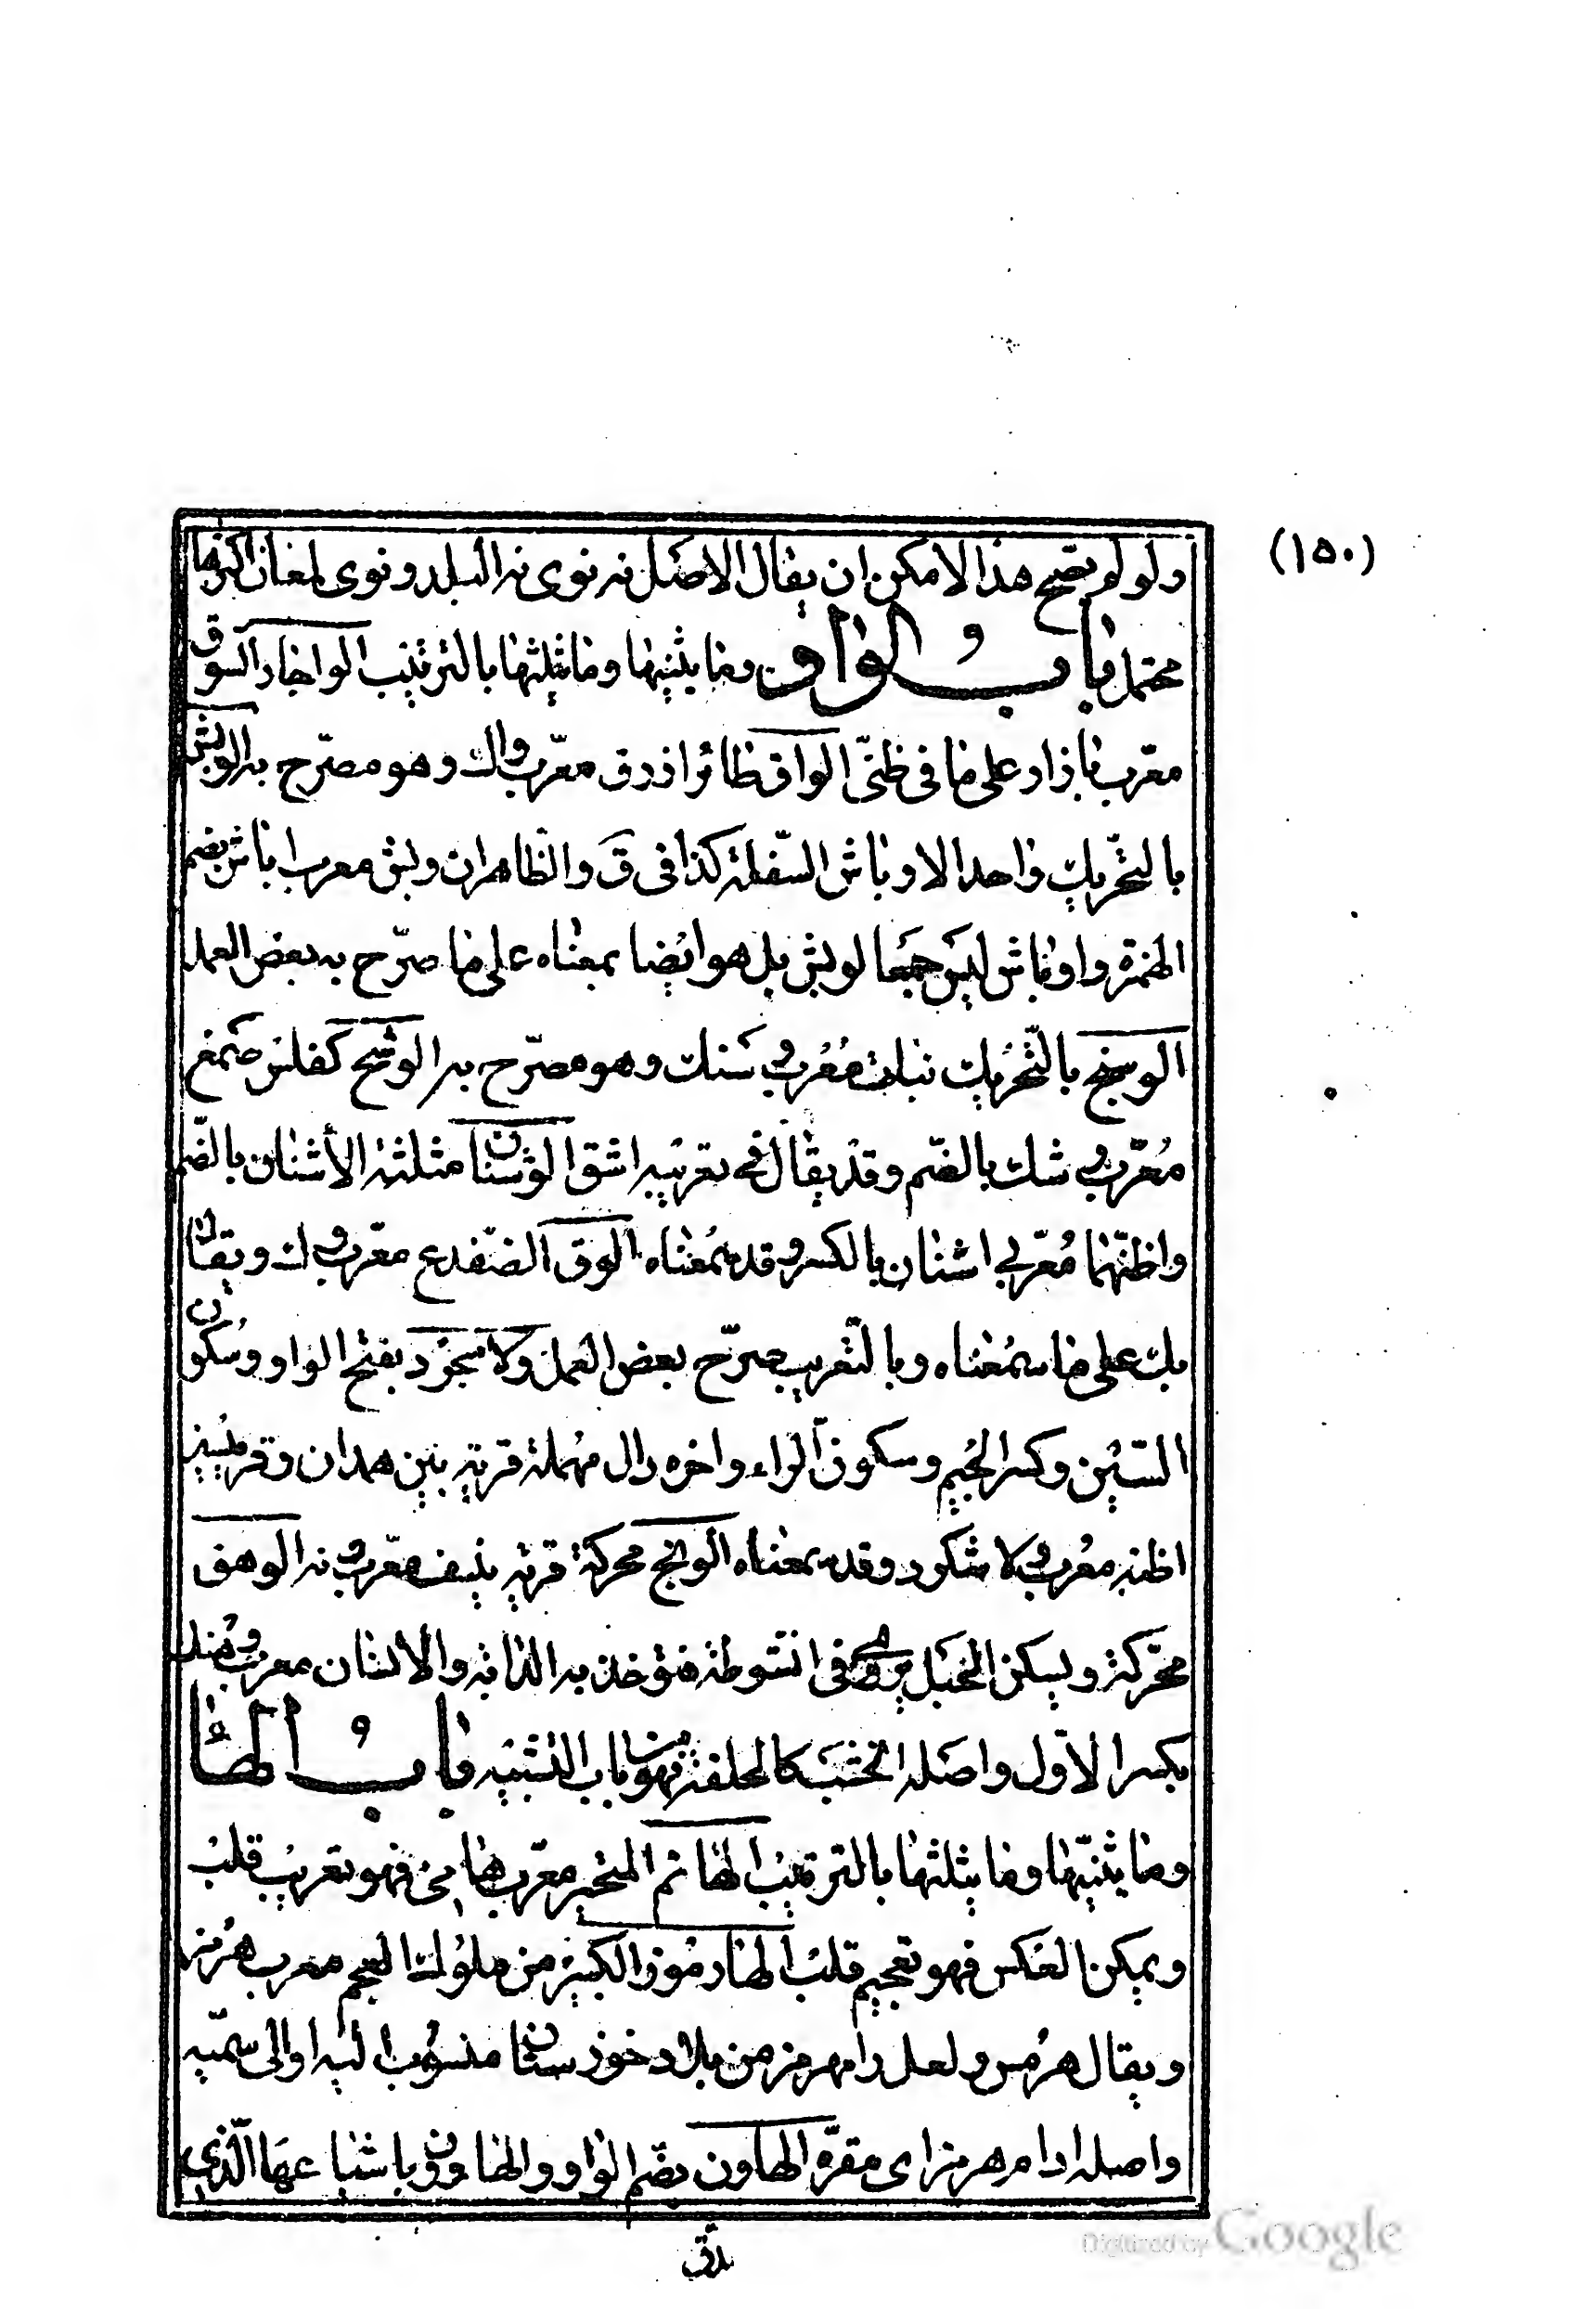 (١٥٠)
ولو لم يصح هذا لامكن ان يقال الاصل نه نوى نه البلد ونوى لمعان اكثرها
محتمل باب الواو وما يثنيها وما يثلثها بالترتيب الواجار السوق
معرب بازار على ما في ظنّي الواق طائر ازرق معرّب واك وهو مصرّح به الوبش
بالتّحريك واحد الاوباش السّفلة كذا في ق والظاهر ان وبش معرب اباش بضم
الهمزة واوباش ليس جمعا لوبش بل هو ايضا بمعناه على ما صرّح به بعض العمل
الوسنج بالتّحريك نبات معرب سنك وهو مصرّح به الوشح كفلس صمغ
مُعرّب وشك بالضّم وقد يقال في تعريبه اشق الوشنان مثلثة الأشنان بالضّم
واظنّهما مُعرّبي اشنان بالكسر وقد بمعناه الوق الضّفدع معرّب وك ويقال
بك على ما سمعناه وبالتّعريب صرّح بعض العمل ولاسجرد بفتح الواو وسكون
السّين وكسر الجيم وسكون الراء واخره دال مهملة قرية بين همدان وقرميسين
اظنه معرب ولاشكرد وقد بمعناه الونج محركة قرية بنسف معرّب ونه الوهق
محرّكة ويسكن الحبل يرمى في انشوطة فتؤخذ به الدّابة والانسان معرب وهنك
بكسر الاوّل واصله الخشب كالحلقة فهو من باب التشبيه باب الهاء
وما يثنيّها وما يثلثها بالترتيب الهائم المتحير معرّب هامى فهو تعريب قلب
ويمكن العكس فهو تعجيم قلب الهارموز الكبير من ملوك العجم معرب هرمز
ويقال هرمس ولعل رامهرمز من بلاد خوزستان منسوب اليه او الى سميّه
واصله ارام هرمز اى مقرّه الهاون بضّم الواو والهاوون باشباعها الّذي
يدق